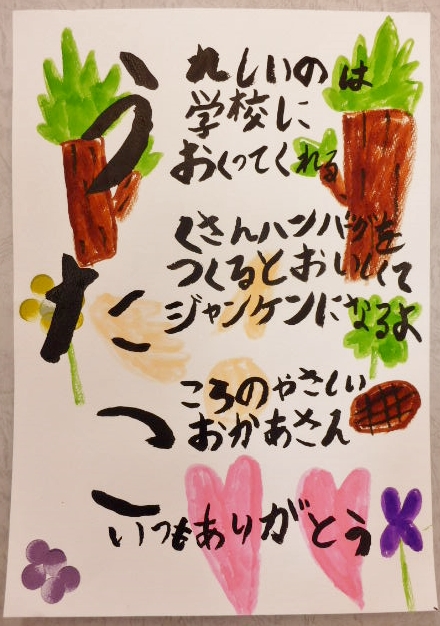 うれしいのは
学校に
おくってくれる
たくさんハンバグを
つくるとおいしくて
ジャンケンになるよ
こころのやさしい
おかあさん
いつもありがとう